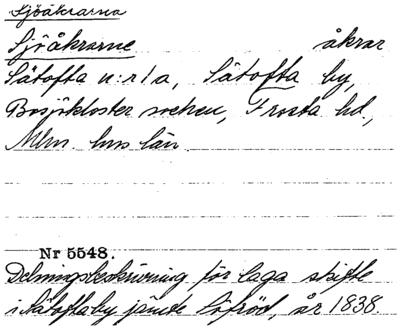 Sjöåkrarna
Sjöåkrarne åkrar
Sätofta n:r 1a, Sätofta by,
Bosjökloster socken, Frosta hd.,
Mlm. hus län.
Nr 5548.
Delningsbeskrivning för laga skifte
i Sätofta by jämte Löfröd, år 1838.